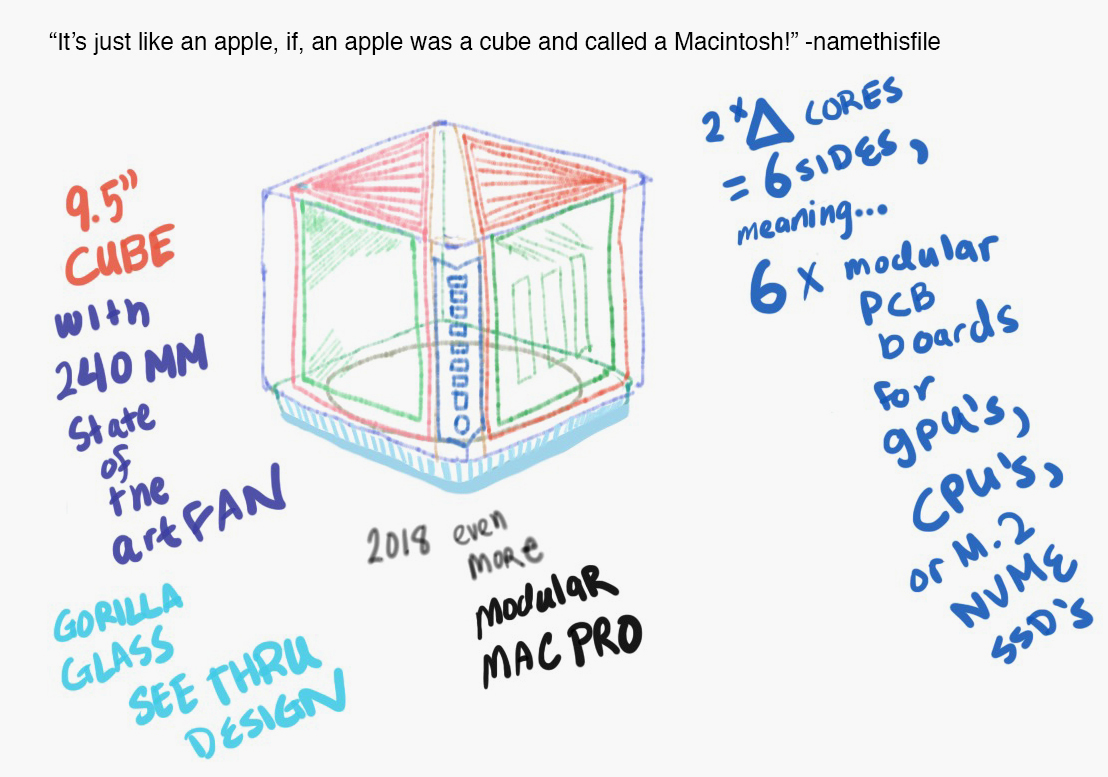 “It’s just like an apple, if, an apple was a cube and called a Macintosh!” -namethisfile
9.5”
CUBE
with
240 MM
State
of
the
art FAN
GORILLA
GLASS
SEE THRU
DESIGN
2018 even
more
Modular
MAC PRO
2 x Δ CORES
= 6 SIDES,
meaning...
6 x modular
PCB
boards
for
gpu's,
CPU's,
or M.2
NVME
SSD's